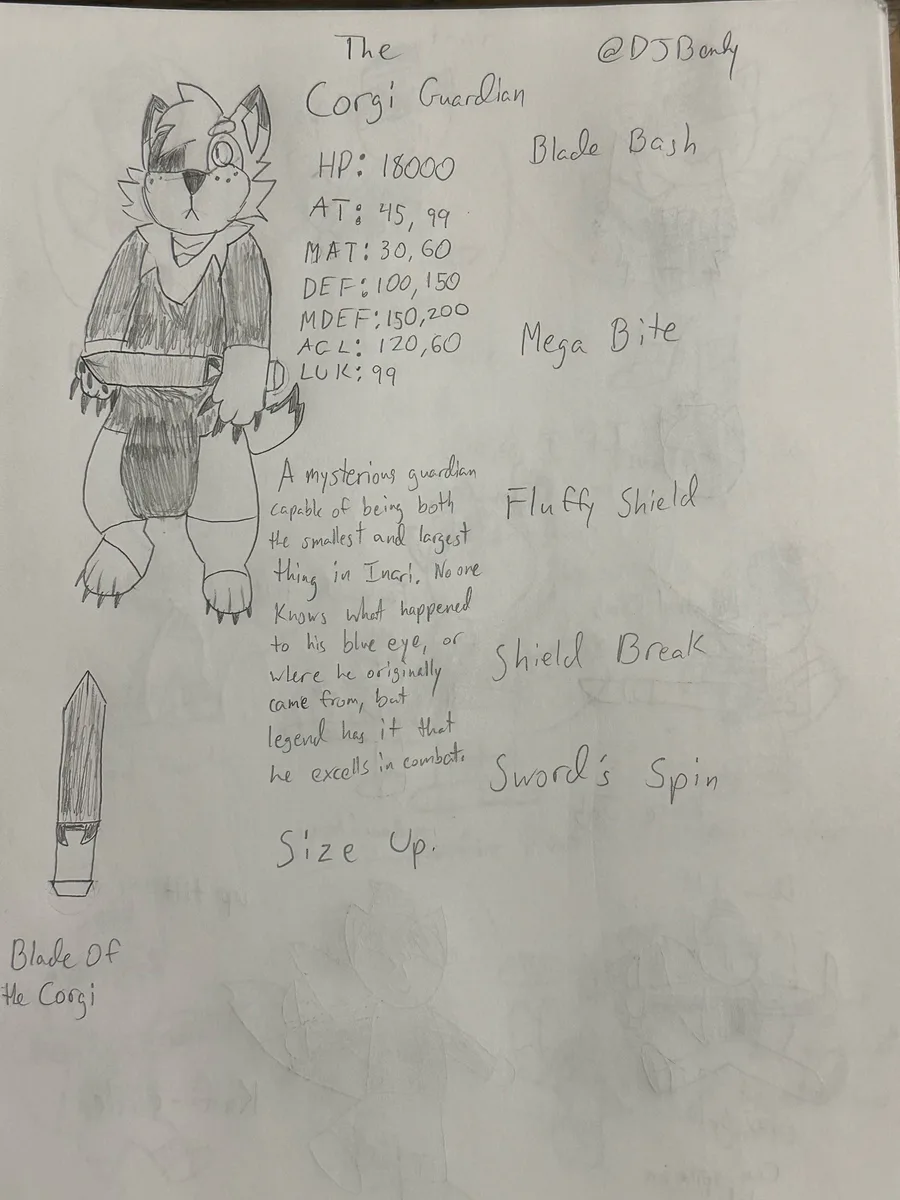 The
Corgi Guardian
@DJBendy
HP: 18000
AT: 45, 99
MAT: 30, 60
DEF: 100, 150
MDEF: 150, 200
ACL: 120, 60
LUK: 99
A mysterious guardian
capable of being both
the smallest and largest
thing in Inari. No one
knows what happened
to his blue eye, or
where he originally
came from, but
legend has it that
he excells in combat.
Size Up.
Blade Bash
Mega Bite
Fluffy Shield
Shield Break
Sword's Spin
Blade Of
the Corgi